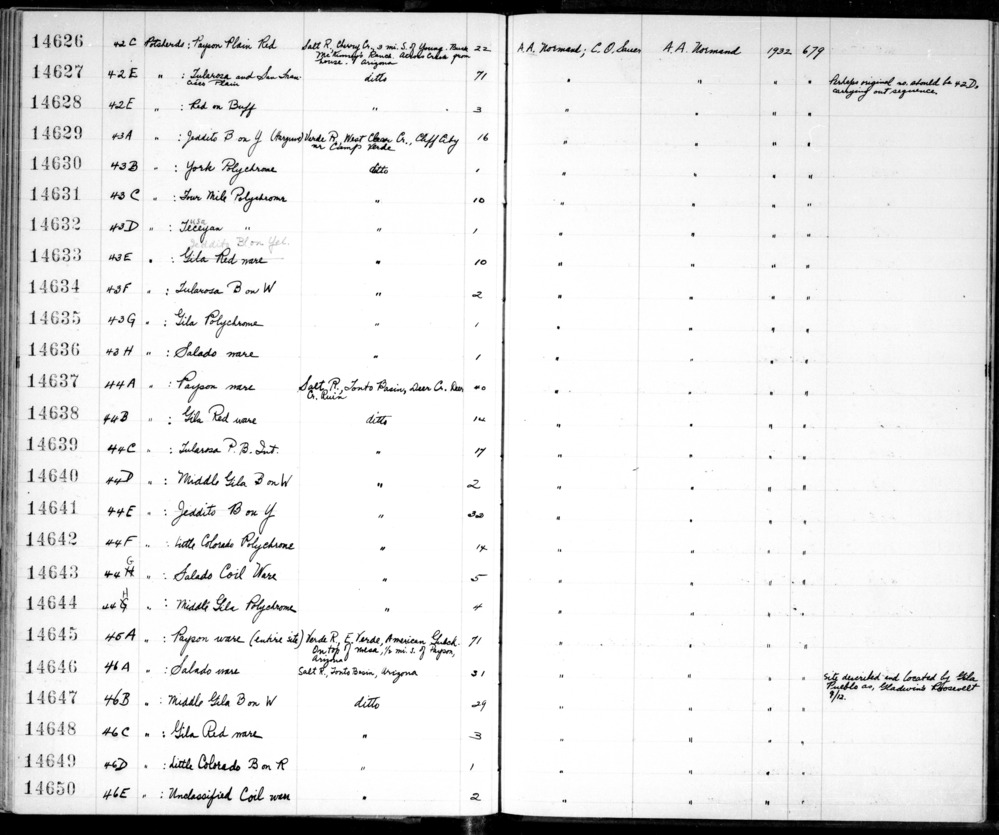 14626 42C Potsherds: Payson Plain Red Salt R., Cherry Cr., 3 mi. S. of Young. Buck McKinney's Ranch. Across creek from house. Arizona 22 A.A. Normand; C.O. Sauer A.A. Normand 1932 679
14627 42E " : Tularosa and San Francisco Plain ditto 71 " " " " Perhaps original no. should be 42D, carrying out sequence.
14628 42E " : Red on Buff " 3 " " " "
14629 43A " : Jeddito B on Y (Hargrave) Verde R, West Clear Cr., Cliff City nr Camp Verde 16 " " " "
14630 43B " : York Polychrome ditto 1 " " " "
14631 43C " : Four Mile Polychrome " 10 " " " "
14632 43D " : Tuseyan " " 1 " " " "
Jeddito Bl on Yel.
14633 43E " : Gila Red ware " 10 " " " "
14634 43F " : Tularosa B on W " 2 " " " "
14635 43G " : Gila Polychrome " 1 " " " "
14636 43H " : Salado ware " 1 " " " "
14637 44A " : Payson ware Salt R., Tonto Basin, Deer Cr. Deer Cr. Ruin 40 " " " "
14638 44B " : Gila Red ware ditto 14 " " " "
14639 44C " : Tularosa P. B. Int. " 17 " " " "
14640 44D " : Middle Gila B on W " 2 " " " "
14641 44E " : Jeddito B on Y " 32 " " " "
14642 44F " : Little Colorado Polychrome " 14 " " " "
14643 44G " : Salado Coil Ware " 5 " " " "
14644 44H " : Middle Gila Polychrome " 4 " " " "
14645 45A " : Payson ware (entire site) Verde R., E. Verde, American Gulch. On top of mesa, 1/2 mi. S. of Payson, Arizona 71 " " " "
14646 46A " : Salado ware Salt R., Tonto Basin, Arizona 31 " " " " Site described and located by Gila Pueblo as, Gladwin's Roosevelt 9/12.
14647 46B " : Middle Gila B on W ditto 29 " " " "
14648 46C " : Gila Red ware " 3 " " " "
14649 46D " : Little Colorado B on R " 1 " " " "
14650 46E " : Unclassified Coil ware " 2 " " " "